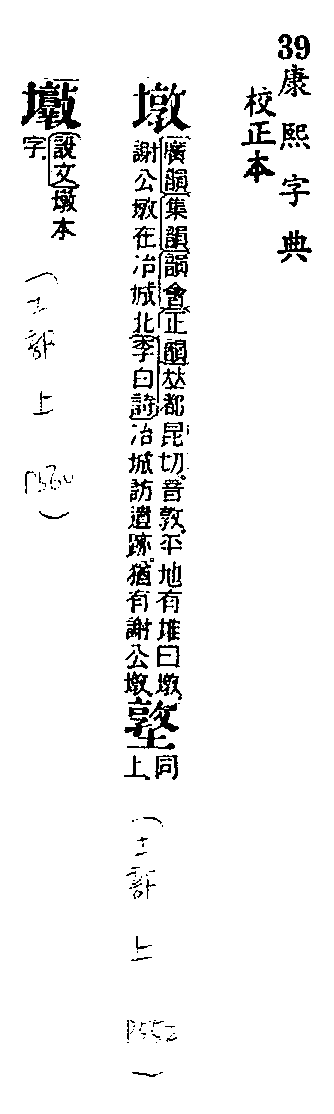 39康熙字典
校正本
墩廣韻集韻韻會正韻𠀤都昆切。音敦。平地有堆曰墩。
謝公墩在冶城北李白詩冶城訪遺跡。猶有謝公墩。
墪同
上。
(土部上 P552)
說文墩本
字。
(土部上 P560)